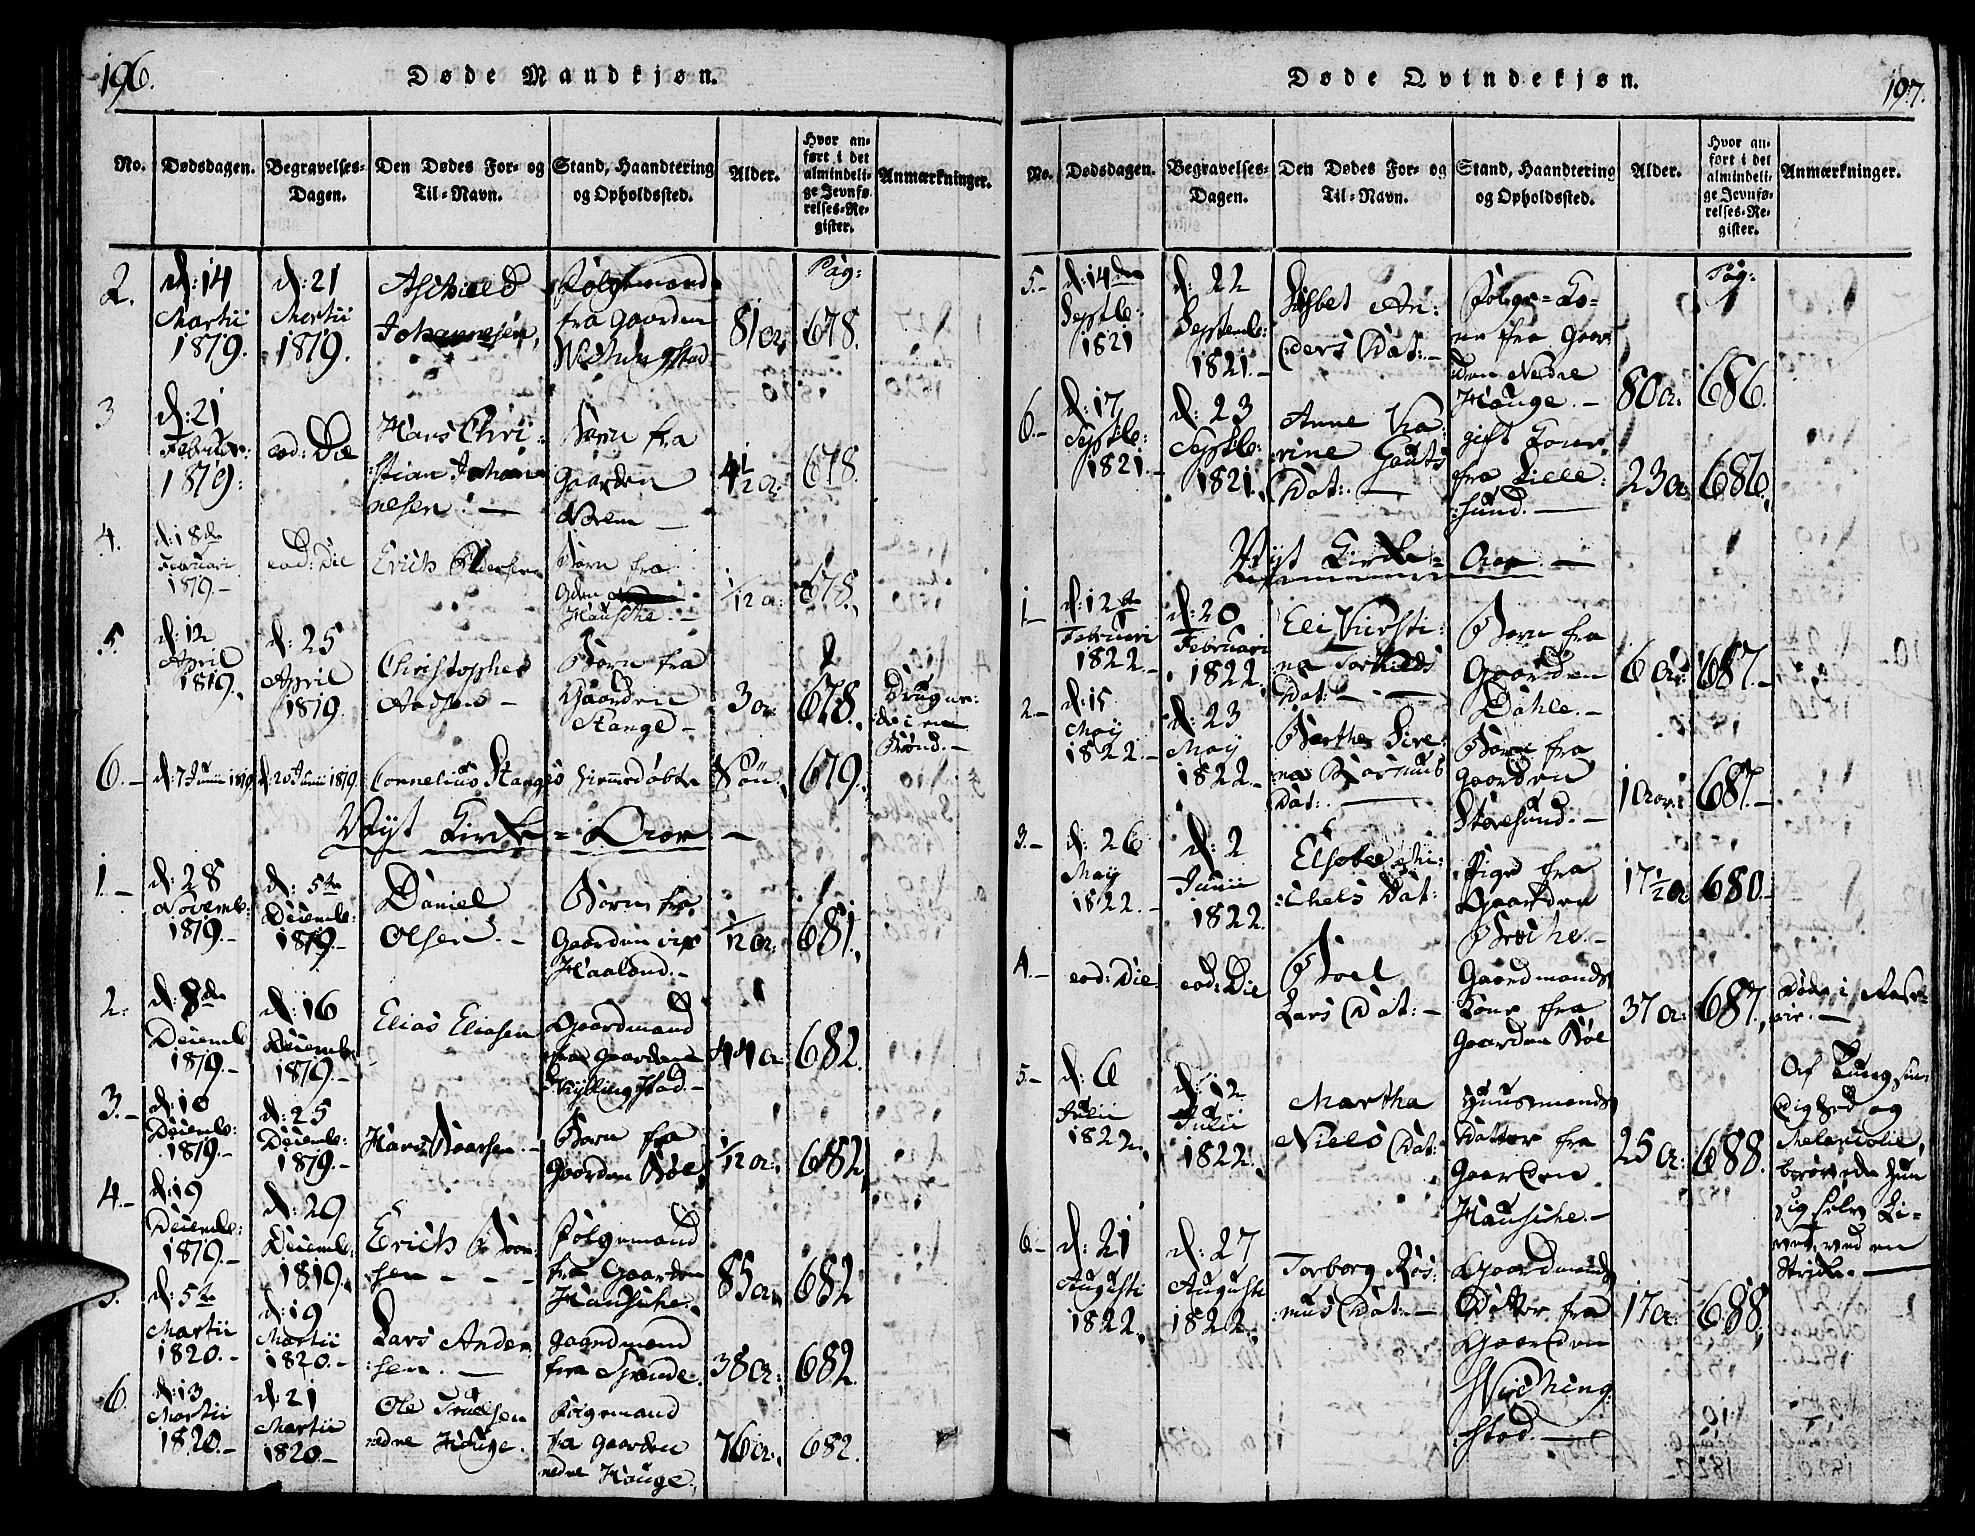 196.
Døde Mandkjøn.
No. Dødsdagen. Begravelses-Dagen. Den Dødes For- og Til-Navn. Stand, Haandtering og Opholdssted. Alder. Hvor anført i det almindelige Jevnførelses-Register. Anmærkninger.
2. d: 14 Martii 1819. d: 21 Martii 1819. Aschield Johannesen, Følgemand fra Gaarden 81 ar, Pag: 678.
3 d: 21 Februar: 1819: eod: Die Hans Christian Johannesen: — Barn fra Gaarden Norem — 4 1/2 ar: 678.
4. d: 18de Februari 1819.- eod: Die Erich Barn fra Gden Hausche.- 1/12 a: 678.
5. d: 12 April 1819. d: 25 April 1819 Christopher Aadsen - Barn fra Gaarden Stange - 3 ar. 678. Brønd.-
6.- d. 7 Junii 1819 d. 20 Junii 1819 Cornelius Stange Hiemedøbte Søn. 679.
Nyt Kirke = Aar —
1.- d: 28 Novemb: 1819.- d: 5te Decemb: 1819.- Daniel Olsen.- Barn fra Gaarden Haaland.- 1/12 ar. 681.
2: d: 8de Decemb: 1819.- d: 16 Decemb: 1819.- Elias Eliasen Gaardmand fra Gaarden 44 a 682.
3.- d: 10 Decemb: 1819.- d: 25 Decemb: 1819.- Hans Baarsen.- Barn fra Gaarden Bøe, 1/12 ar. 682.
4.- d: 19 Decemb: 1819.- d: 29 Decemb: 1819. Erich - - Følgemand fra Gaarden Hausche. 85 ar 682
5. d: 5te Martii 1820.- d: 19 Martii 1820.- Lars Andersen.- Gaardmand fra Spande. 38 ar. 682.
6. d: 13 Martii 1820.- d: 21 Martii 1820.- Ole Truelsen nedre Hauge. Følgemand fra Gaarden nedre Hauge. 76 ar. 682.
Døde Qvindekjøn.
197.
No. Dødsdagen. Begravelses-Dagen. Den Dødes For- og Til-Navn. Stand, Haandtering og Opholdssted. Alder. Hvor anført i det almindelige Jevnførelses-Register. Anmærkninger.
5.- d: 14de Septbr: 1821 d: 22 Septemb: 1821.- Lisbet Anders Dat:- Følge=Kone fra Gaarden Nedre Hauge.- 80 a. Pag: 686.
6.- d: 17 Septbr: 1821.- d: 23 Septbr: 1821. Anne Karine Gauts Dat: — gift Kone fra Lillesund.— 23 a: 686.
Nyt Kirke = Aar.—
1- d: 12te Februari 1822.- d: 20 Februari 1822. Eli Kirstina Torkilds Dat: — Barn fra Gaarden Dahle.- 6 ar: 687.-
2.- d: 15 May 1822.- d: 23 May 1822.- Berthe Sirena Rasmus Dat:— Barn fra Gaarden Storesund.- 1 aar: 687.-
3.- d: 26 May 1822.- d: 2 Junii 1822. Elsebe Michels Dat: Pige fra Gaarden 17 1/2 a 680.-
4.- eod: Die eod: Die Boel Lars Dat:- Gaardmands Kone fra Gaarden Bøe 37 a: 687. Døde i
5.- d: 6 Julii 1822. d: 12 Julii 1822. Martha Niels Dat: Huusmands Datter fra Gaarden Hausche.- 25 a: 688. Af Tungsindighed og Melancolie, berøvede hun sig selv Livet, ved en Strikke.—
6- d: 21 Augusti 1822. d: 27 Augusti 1822. Torborg Rasmus Dat:- Gaardmands Datter fra Gaarden 17 a: 688.